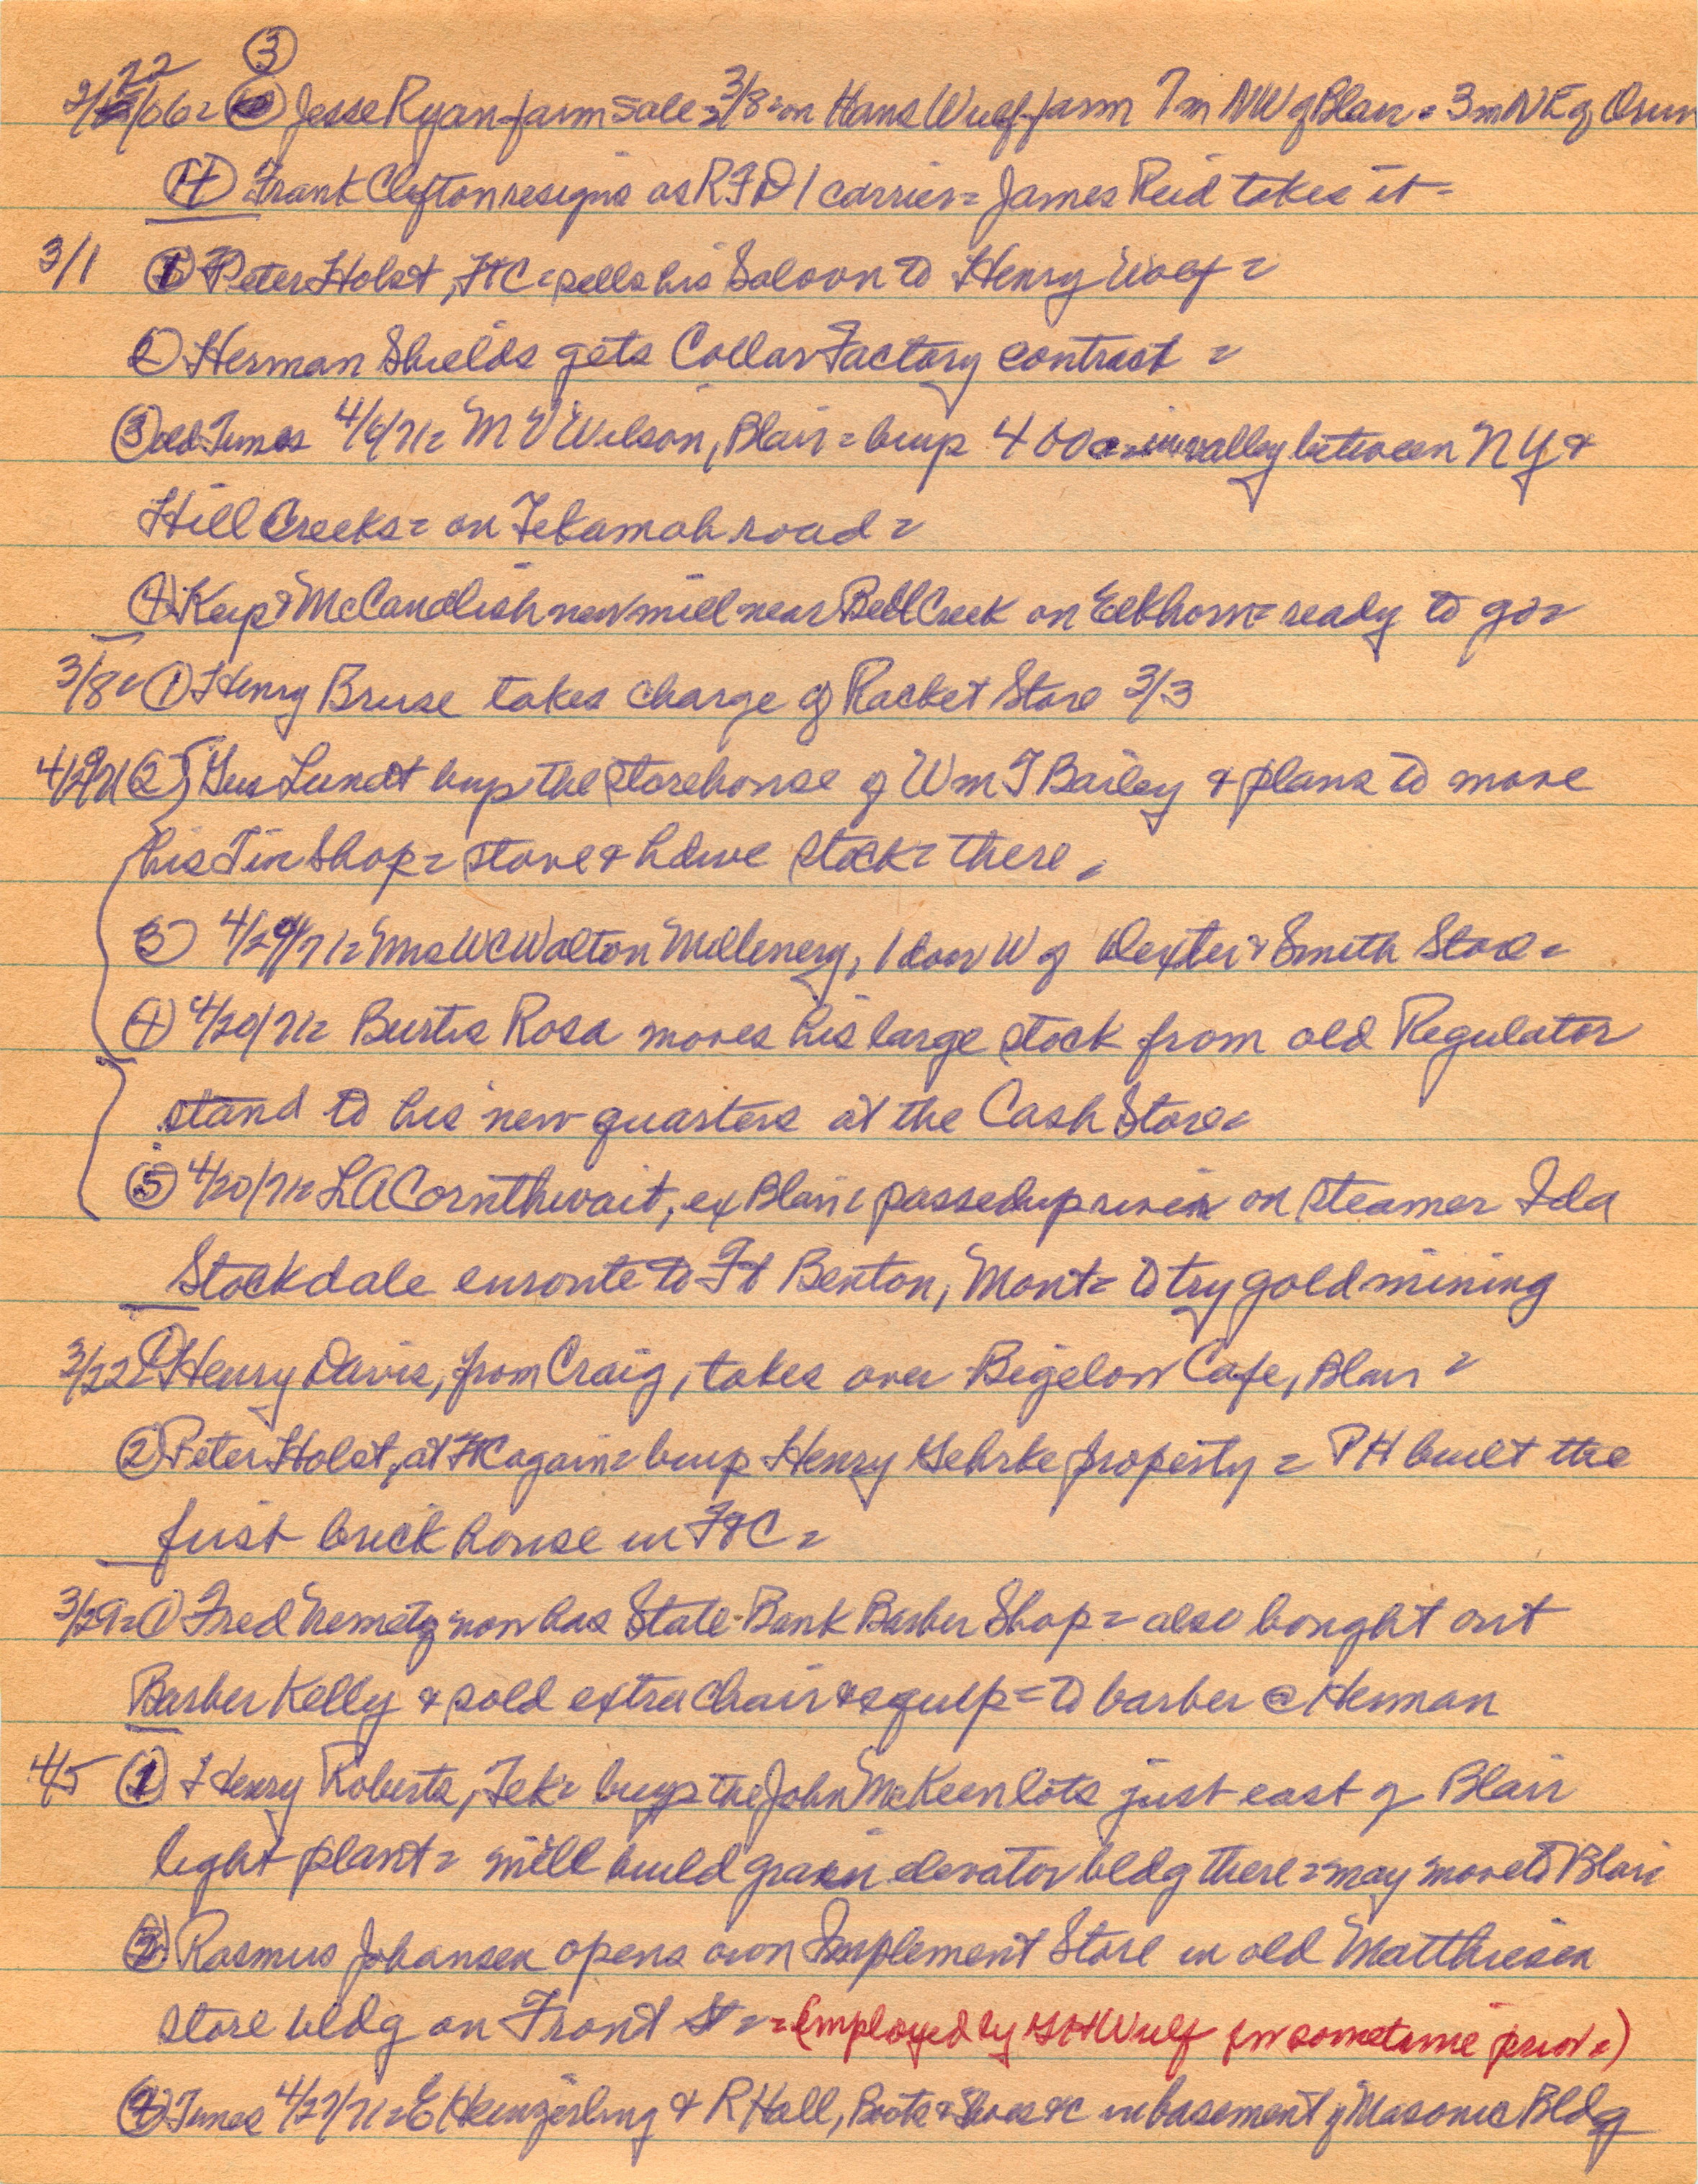 2/22/06= ③ Jesse Ryan farm sale = 3/8 = on Hans Wulf farm 7m NW of Blair = 3m NE of Orum
④ Frank Clifton resigns as RFD 1 carrier = James Reid takes it =
3/1 ① Peter Holst, FtC = sells his Saloon to Henry Wolf =
② Herman Shields gets Collar Factory contract =
③ old Times 4/6/71= M V Wilson, Blair = buys 400a = in valley between NY &
Hill Creeks = on Tekamah road =
④ Keep & McCandlish new mill near Bell Creek on Elkhorn = ready to go =
3/8 = ① Henry Bruse takes charge of Racket Store 3/3
4/29/71 ② Gus Lundt buys the storehouse of Wm T Bailey & plans to move
his Tin Shop = stove & hdwe stock = there.
③ 4/29/71= Mrs WC Walton Millenery, 1 door W of Dexter & Smith Store =
④ 4/20/71= Burtis Rosa moves his large stock from old Regulator
stand to his new quarters at the Cash Store =
⑤ 4/20/71= LA Cornthwait, ex Blair = passed up river on steamer Ida
Stockdale enroute to Ft Benton, Mont = to try gold mining
3/22= ① Henry Davis, from Craig, takes over Bigelow Cafe, Blair =
② Peter Holst, at FtC again = buys Henry Gehrke property = PH built the
first brick house in FtC =
3/29= ① Fred Nemetz now has State Bank Barber Shop = also bought out
Barber Kelly & sold extra chair & equip = to barber @ Herman
4/5 ① Henry Roberts, Tek = buys the John McKeen lots just east of Blair
light plant = will build grain elevator bldg there = may move to Blair
③ Rasmus Johansen opens own Implement Store in old Matthiesen
store bldg on Front St = = (employed by GH Wulf for sometime prior =)
④ Times 4/27/71 = E Henzerling & R Hall, Boots & Shoes &c in basement of Masonic Bldg